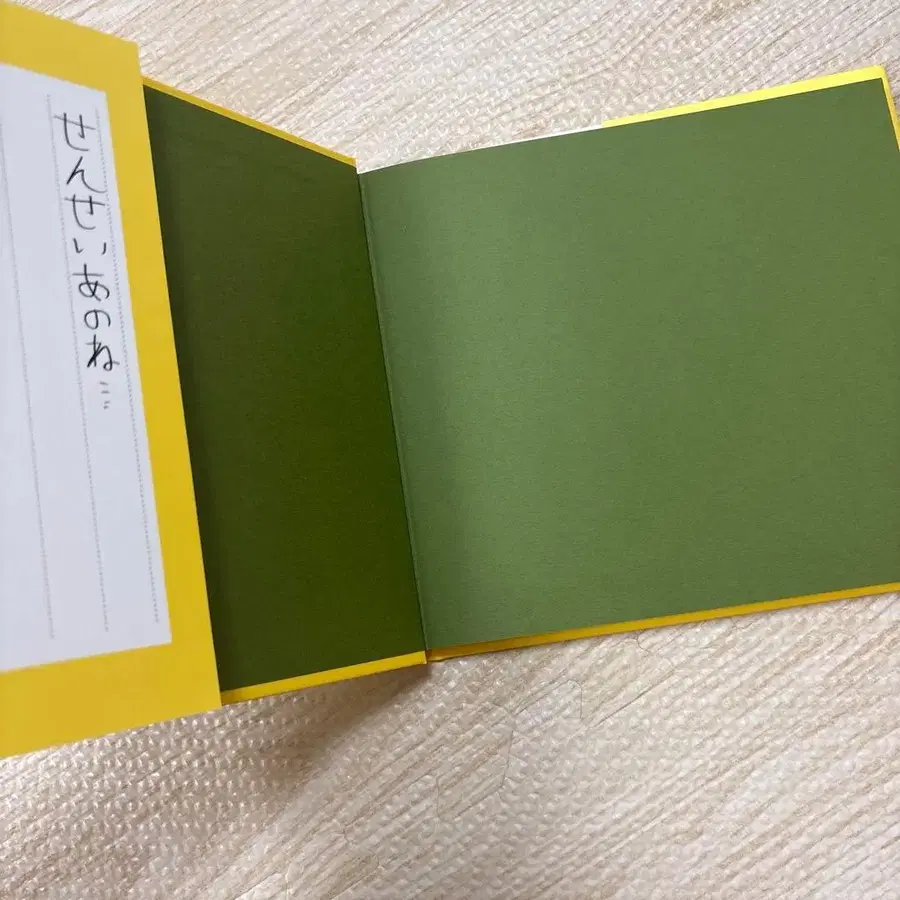 せんせいあのね…